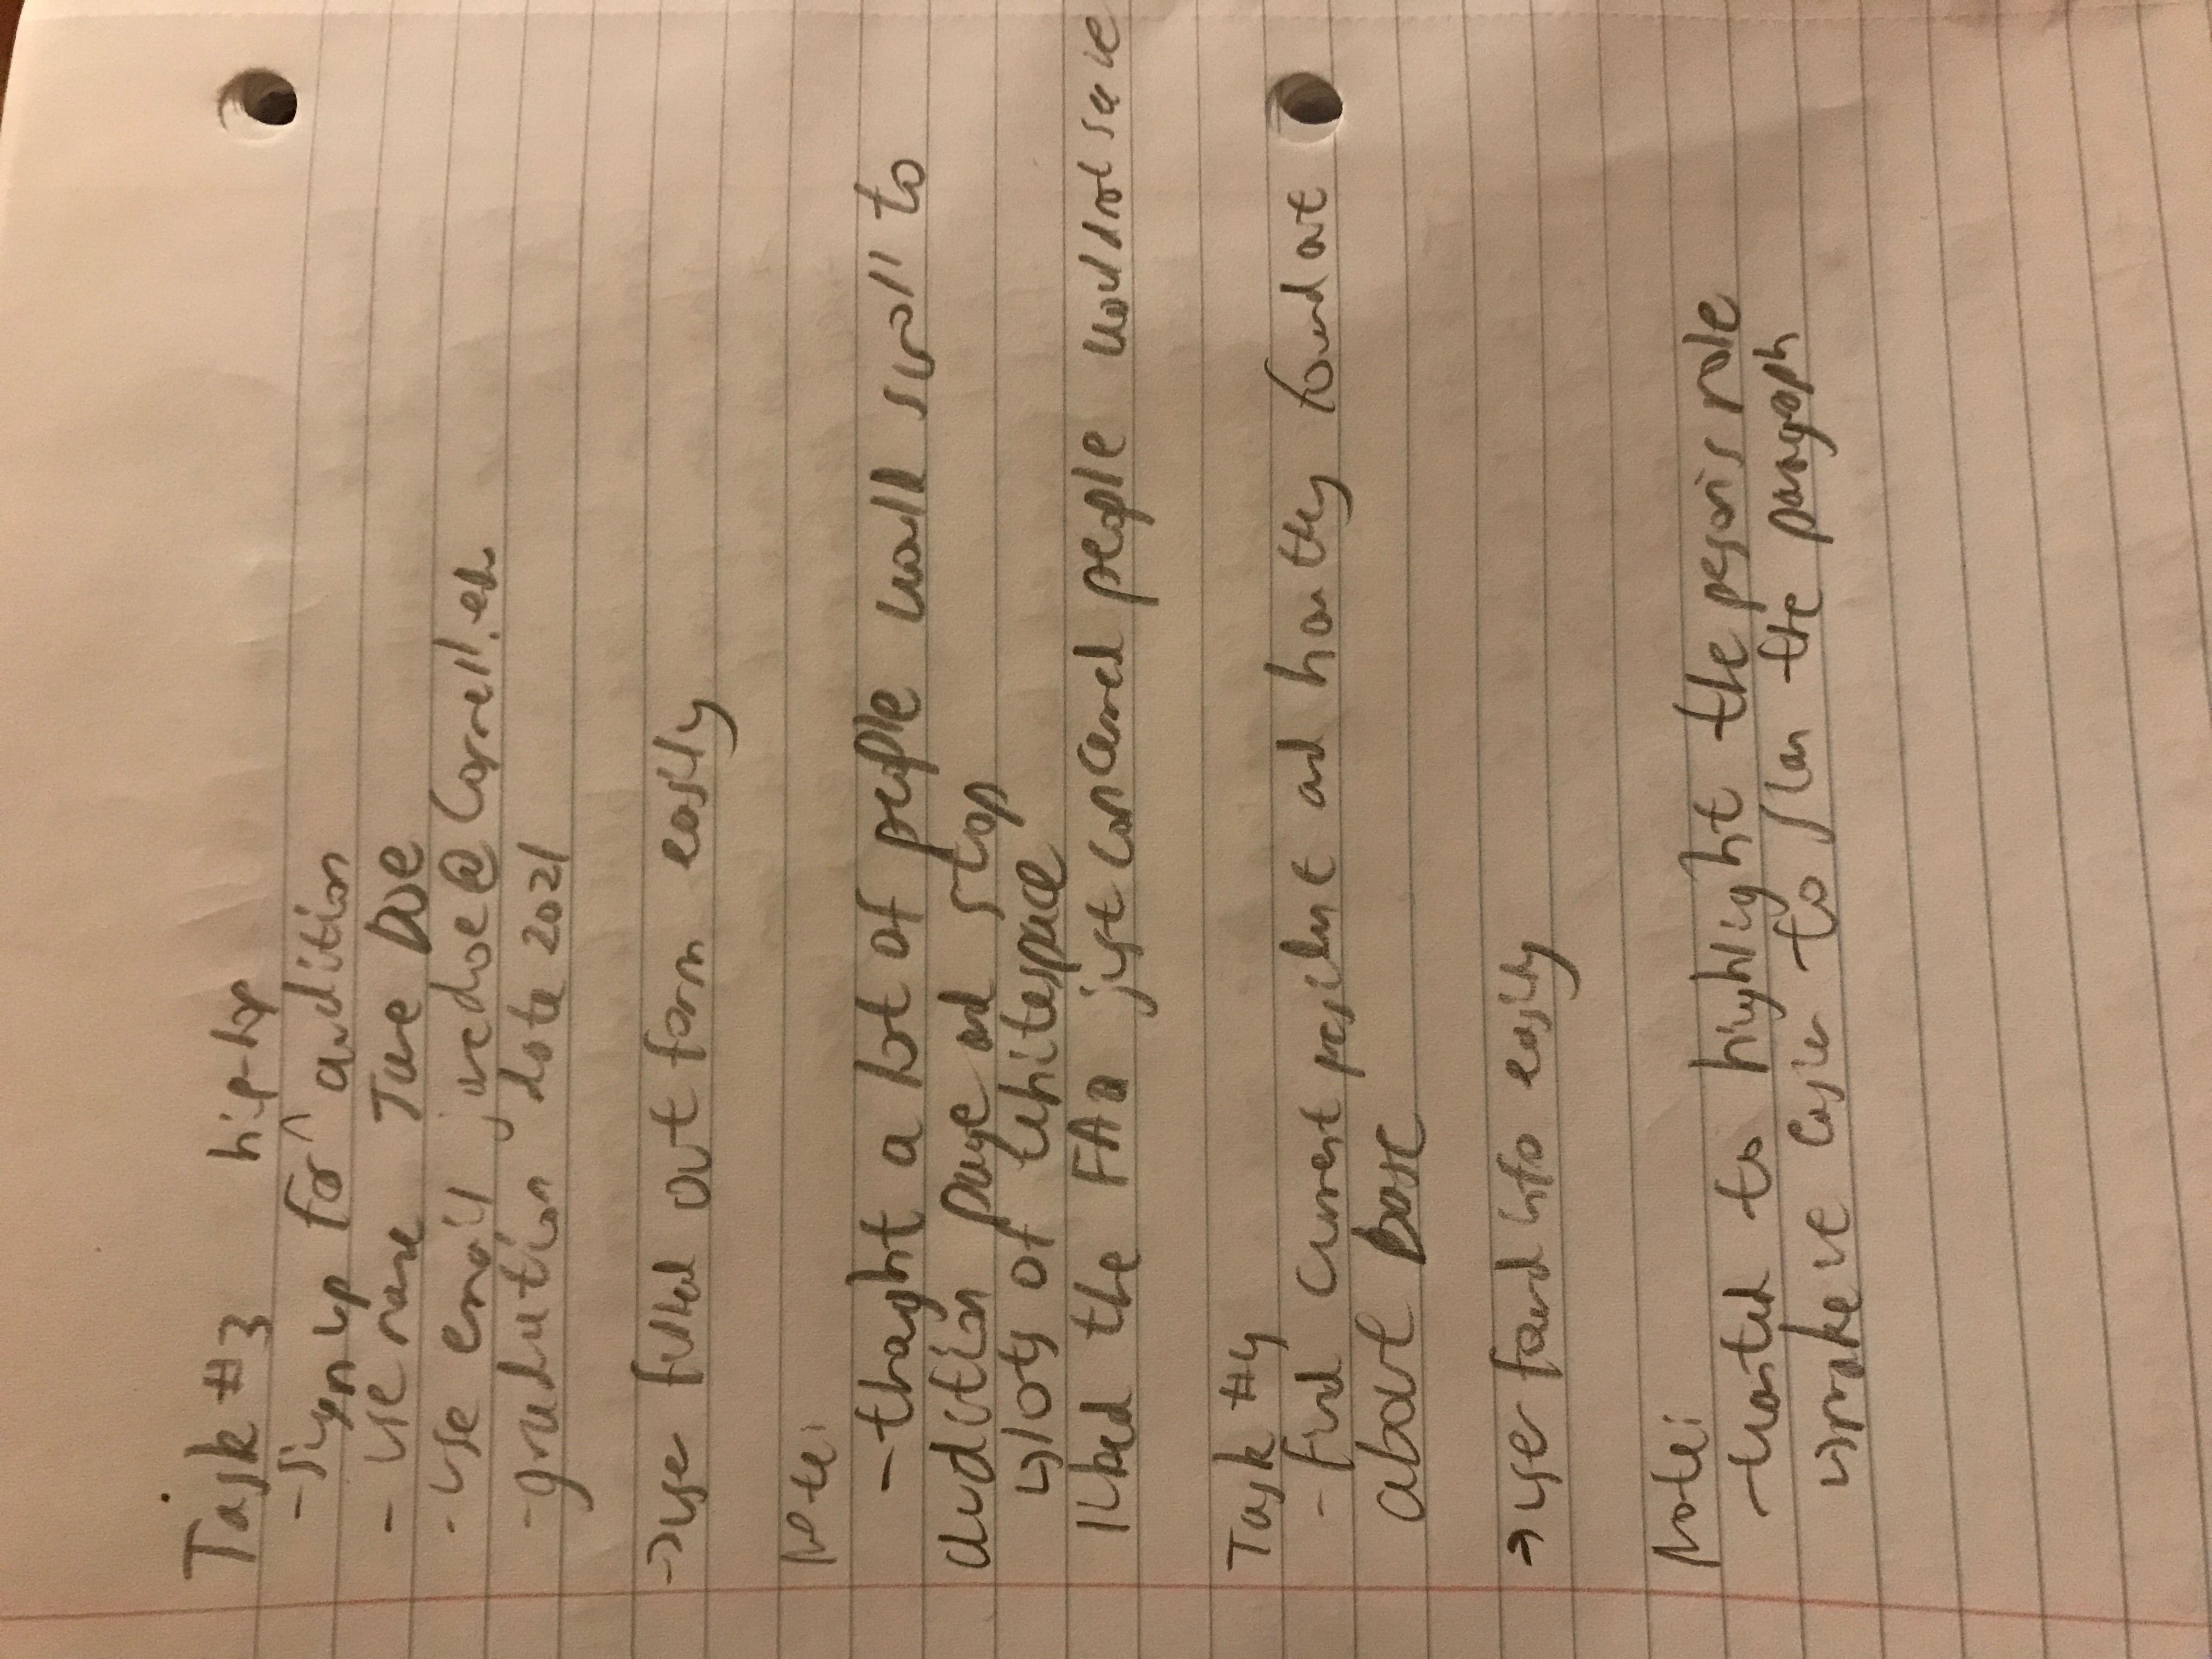 Task #3 hip-hop
- Sign up for ^ audition
- use name Jane Doe
- use email janedoe@Cornell.edu
- graduation date 2021
→ use filled out form easily
Note:
- thought a lot of people would scroll to
audition page and stop
↳ lots of whitespace
liked the FAQ just concerned people would not see it
Task #4
- find current president and how they found out
about Base
→ user found info easily
Note:
- wanted to highlight the person's role
↳ make it easier to scan the paragraph